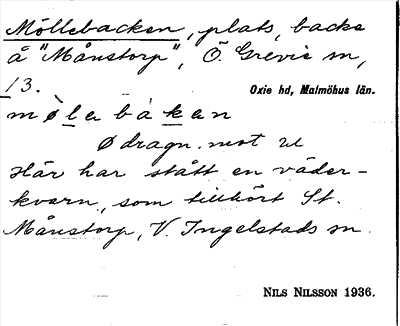 Möllebacken, plats, backe
å "Månstorp", Ö. Grevie sn,
13.
Oxie hd, Malmöhus län.
mølabàkan
Ø dragn. mot œ
Här har stått en väder-
kvarn, som tillhört St.
Månstorp, V. Ingelstads sn.
NILS NILSSON 1936.